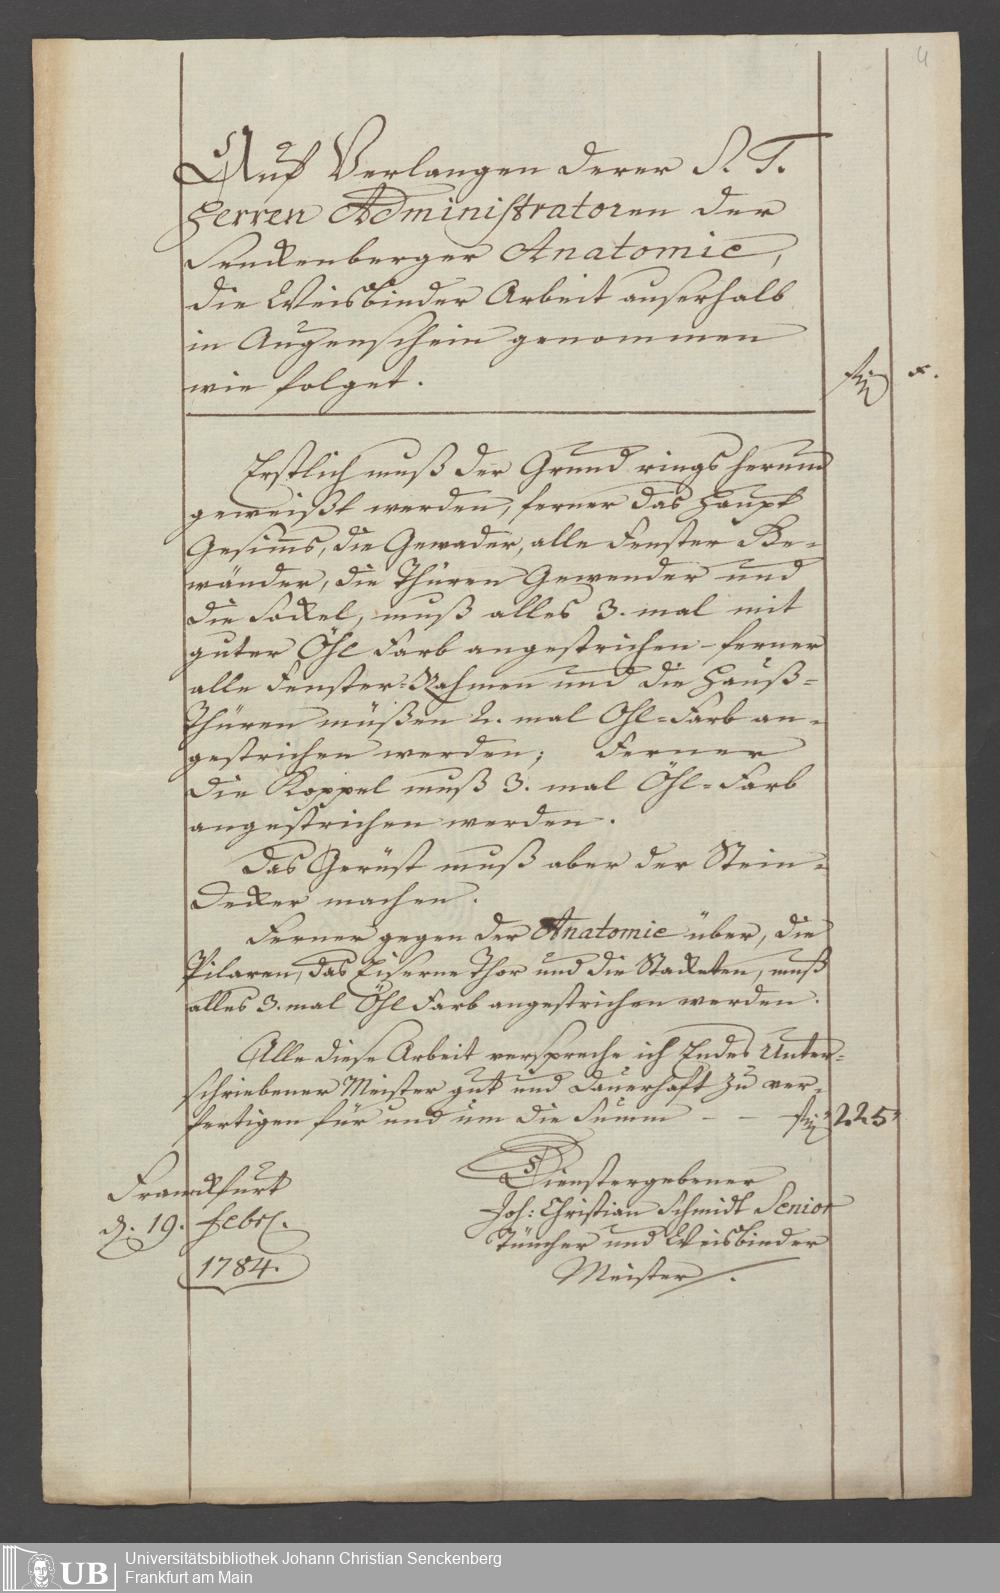 4
Auf Verlangen derer S. T.
Herren Administratoren der
Senckenberger Anatomie,
die Weisbinder Arbeit auserhalb
in Augenschein genommen
wie folget.
Erstlich muß der Grund rings herum
geweißt werden, ferner das Haupt
Gesims, die Gewader, alle Fenster Be-
wänder, die Thüren Gewender und
die Sockel, muß alles 3. mal mit
guter Öhl Farb angestrichen - ferner
alle Fenster-Rahmen und die Hauß-
Thüren müßen 2. mal Ohl-Farb an-
gestrichen werden; Ferner
die Koppel muß 3. mal Öhl-Farb
angestrichen werden.
Das Gerüst muß aber der Stein-
Decker machen.
Ferner gegen der Anatomie über, die
Pilaren, das Eiserne Thor und die Stacketen, muß
alles 3. mal Öhl Farb angestrichen werden.
Alle diese Arbeit verspreche ich Endes Unter-
schriebener Meister gut und dauerhaft zu ver-
fertigen für und um die Summ - - 225
Dienstergebener
Joh: Christian Schmidt Senior
Tüncher und Weisbinder
Meister.
Franckfurt
d. 19. Febr.
1784.
UB
Universitätsbibliothek Johann Christian Senckenberg
Frankfurt am Main